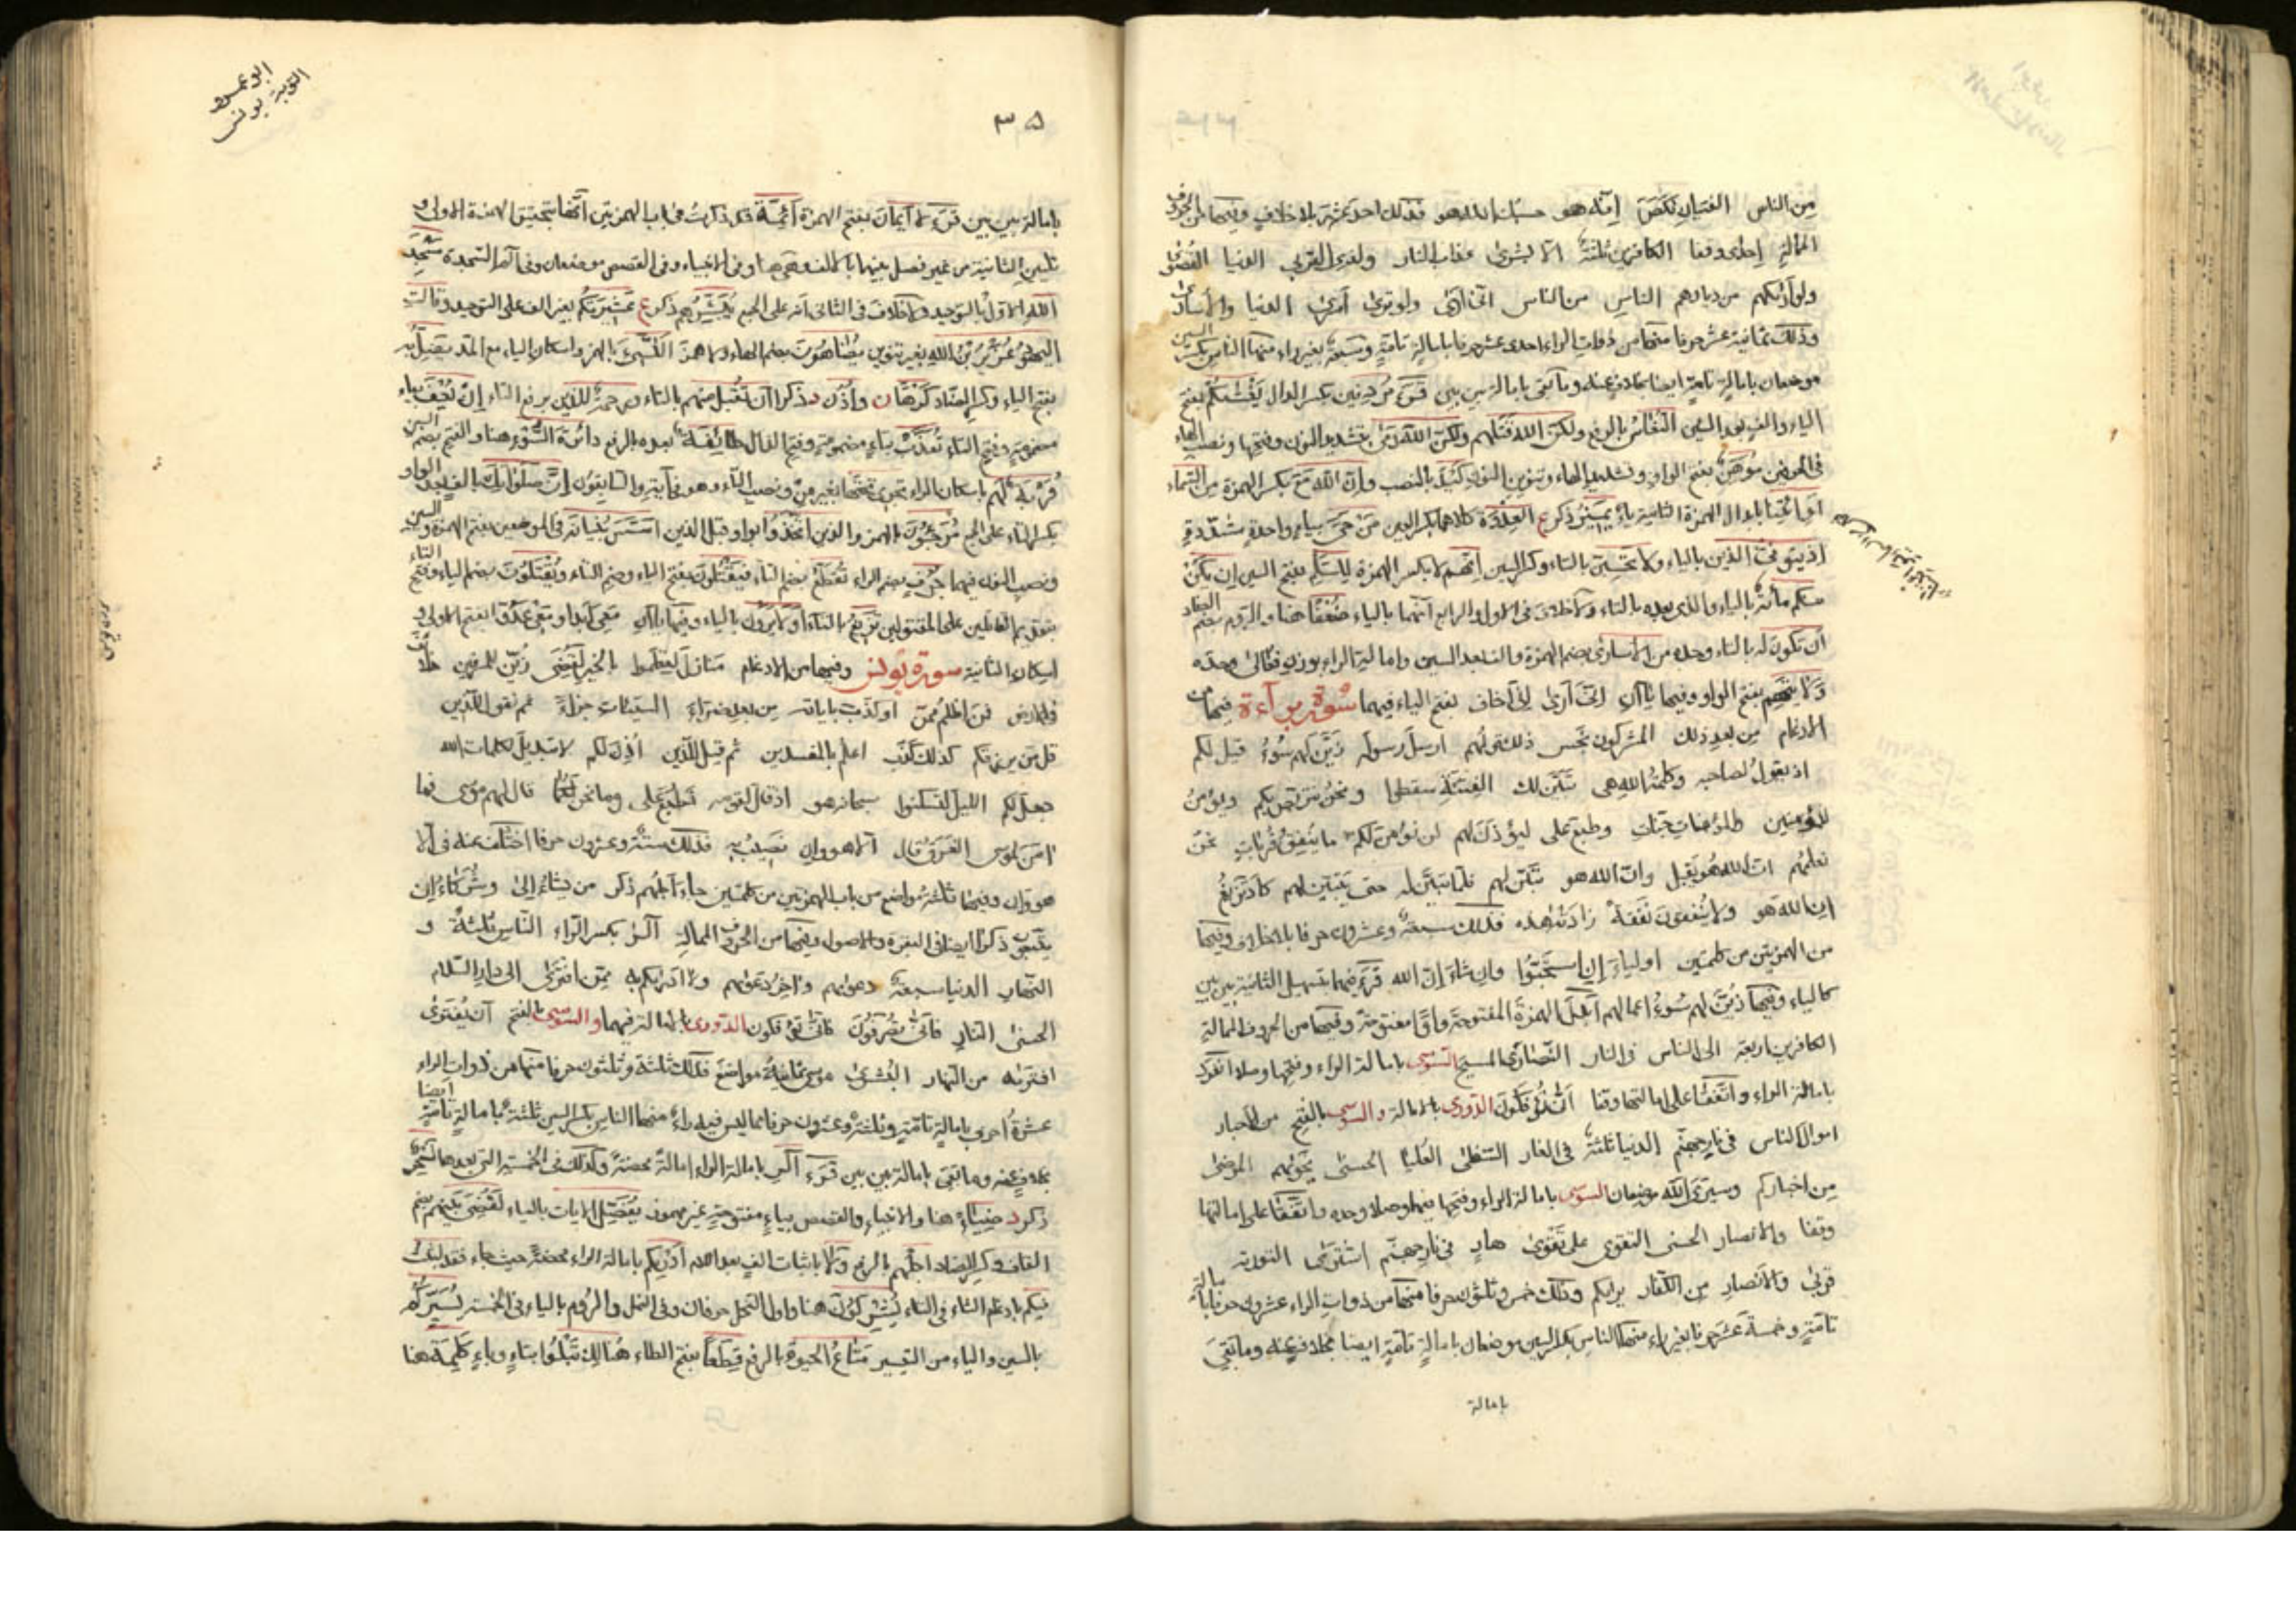 من الناس الفئتان نكص إنّه هو حسبك الله هو فذلك احد عشر بلا خلاف وفيها من الحروف
الممالة إحدى وقفا الكافرين ثلثة الا بشرى عذاب النار ولذي القربى الدنيا القصوى
ولو أراكهم من ديارهم الناس من الناس انى أرى ولو ترى أسرى الدنيا والأسارى
وذلك ثمانية عشر حرفا منها من ذوات الراء احدى عشر حرفا بامالة تامّة وسبعة بغير راء منها الناس بكسر السين
موضعان بامالة تامّة ايضا بخلاف عنه وما بقى بامالة بين بين قرء مردفين بكسر الدال يغشاكم بفتح
الياء والف بعد الشين النعاس بالرفع ولكن الله قتلهم ولكن الله رمى بتشديد النون وفتحها ونصب الهاء
فى الموضعين موهّن بفتح الواو وتشديد الهاء وتنوين النون كيد بالنصب وإن الله مع بكسر الهمزة من السماء
او ائتنا بابدال الهمزة الثانية ياء ليميز ذكر ع العدوة كلاهما بكسر العين من حيّ بياء واحدة مشدّدة
اذ يتوفى الذين بالياء ولا تحسبن بالتاء وكسر السين إنهم لا بكسر الهمزة للسلم بفتح السين إن يكن
منكم مائة بالياء والذى بعده بالتاء ولا خلاف فى الاول والرابع أنهما بالياء ضعفا هنا والروم بضم الضاد
أن تكون له بالتاء وحده من الأسارى بضم الهمزة والف بعد السين وامالة الراء بوزن فعالى وحده
ولايتهم بفتح الواو وفيها ياآن إنى أرى إنى أخاف بفتح الياء فيهما سورة براءة فيها من
الادغام من بعد ذلك المشركون نجس ذلك قولهم ارسل رسوله زين لهم سوء قيل لكم
اذ يقول لصاحبه وكلمة الله هى تبين لك الفتنة سقطوا ونحن نتربص بكم ويؤمن
للمؤمنين والمؤمنات جنات وطبع على ليؤذن لهم لن نؤمن لكم ما ينفق قربات نحن
نعلمهم ان الله هو يقبل وان الله هو تبين لهم فلما تبين له حتى يتبين لهم كاد تزيغ
إن الله هو ولا ينفقون نفقة زادته هذه فذلك سبعة وعشرون حرفا بلا خلاف وفيها
من الهمزتين من كلمتين اولياء إن استحبوا وإن شاء إن الله قرء فيهما بتسهيل الثانية بين بين
كالياء وفيها زين لهم سوء اعمالهم أبدل الهمزة المفتوحة واوا مفتوحة وفيها من الحروف الممالة
الكافرين اربعة الى الناس فى النار النصارى المسيح السوسى بامالة الراء وفتحها وصلا انفرد
بامالة الراء واتفقا على امالتها وقفا أنى يؤفكون الدورى بالامالة والسوسى بالفتح من الأحبار
اموال الناس فى نار جهنم الدنيا ثلثة فى الغار السفلى العليا الحسنى نجواهم المرضى
من اخباركم وسيرى الله موضعان السوسى بامالة الراء وفتحها فيهما وصلا وحده واتفقا على امالتها
وقفا والانصار الحسنى التقوى على تقوى هار فى نار جهنم اشترى التورية
قربى والأنصار من الكفار يراكم وذلك خمس وثلثون حرفا منها من ذوات الراء عشرون حرفا بامالة
تامّة وخمسة عشر حرفا بغير راء منها الناس بكسر السين موضعان بامالة تامّة ايضا بخلاف عنه وما بقى
بامالة
ابو عمرو
التوبة يونس
٣٥
بامالة بين بين قرء لا أيمان بفتح الهمزة أئمة قد ذكرت فى باب الهمزتين أنها بتحقيق الهمزة الاولى و
تليين الثانية من غير فصل بينهما بالف وهى هنا وفى الانبياء وفى القصص موضعان وفى آلم السجدة مسجد
الله الاول بالتوحيد ولا خلاف فى الثانى أنه على الجمع يبشرهم ذكر ع عشيرتكم بغير الف على التوحيد وقالت
اليهود عزير بن الله بغير تنوين يضاهون بضم الهاء ولا همز النسىء بالهمز واسكان الياء مع المد يضل به
بفتح الياء وكسر الضاد كرها ن وأذن د ذكرا أن تقبل منهم بالتاء ورحمة للذين برفع التاء إن يعف بياء
مضمومة وفتح الفاء تعذب بتاء مضمومة وفتح الذال طائفة بعده بالرفع دائرة السوء هنا والفتح بضم السين
قربة لهم باسكان الراء تجرى تحتها بغير من ونصب التاء وهو فى آية والسابقون إن صلواتك بالف بعد الواو
بكسر التاء على الجمع مرجئون بالهمز والذين اتخذوا بواو قبل الذين أسس بنيانه فى الموضعين بفتح الهمزة والسين
ونصب النون فيهما جرف بضم الراء تقطع بضم التاء فيقتلون بفتح الياء وضم التاء ويقتلون بضم الياء وفتح التاء
بتقديم الفاعلين على المفعولين تزيغ بالتاء أولا يرون بالياء وفيها ياآن معى أبدا ومعى عدوا بفتح الاولى و
اسكان الثانية سورة يونس وفيها من الادغام منازل لتعلموا بالخير لقضى زين للمسرفين خلائف
فى الارض فمن اظلم ممن او كذب باياته من بعد ضراء السيئات جزاء ثم نقول للذين
قل من يرزقكم كذلك كذب اعلم بالمفسدين ثم قيل للذين أذن لكم لا تبديل لكلمات الله
جعل لكم الليل لتسكنوا سبحانه هو اذ قال لقومه نطبع على وما نحن لكما قال لهم موسى فما
امن لموسى الغرق قال الا هو وإن نصيب به فذلك ستة وعشرون حرفا اختلف عنه فى الا
هو وإن وفيها ثلثة مواضع من باب الهمزتين من كلمتين جاء أجلهم ذكر من يشاء إلى وشركاء إن
يتبعون ذكرا ايضا فى البقرة والاصول وفيها من الحروف الممالة آلر بكسر الراء الناس ثلثة و
النهار الدنيا سبعة دعواهم واخر دعواهم ولا ادراكم به ممن افترى الى دار السلام
الحسنى النار فأنى تصرفون فأنى تؤفكون الدورى بالامالة فيهما والسوسى بالفتح أن يفترى
افتراه من النهار البشرى موسى ثمانية مواضع فذلك ثلثة وثلثون حرفا منها من ذوات الراء
عشرة أحرف بامالة تامّة وثلثة وعشرون حرفا مما ليس فيه راء منها الناس بكسر السين ثلثة بامالة تامّة ايضا
بخلاف عنه وما بقى بامالة بين بين قرء آلر بامالة الراء امالة محضة وكذلك فى الخمسة التى بعدها لسحر
ذكر د ضياء هنا والانبياء والقصص بياء مفتوحة غير مهموز يفصل الايات بالياء لقضى اليهم بضم
القاف وكسر الضاد اجلهم بالرفع ولا باثبات الف بعد اللام أدريكم بامالة الراء محضة حيث جاء فقد لبثت
فيكم بادغام الثاء فى التاء يشركون هنا واول النحل حرفان وفى النمل والروم بالياء فى الخمسة يسيركم
بالسين والياء من التسيير متاع الحيوة بالرفع قطعا بفتح الطاء هنالك تبلوا بتاء وباء كلمة هنا